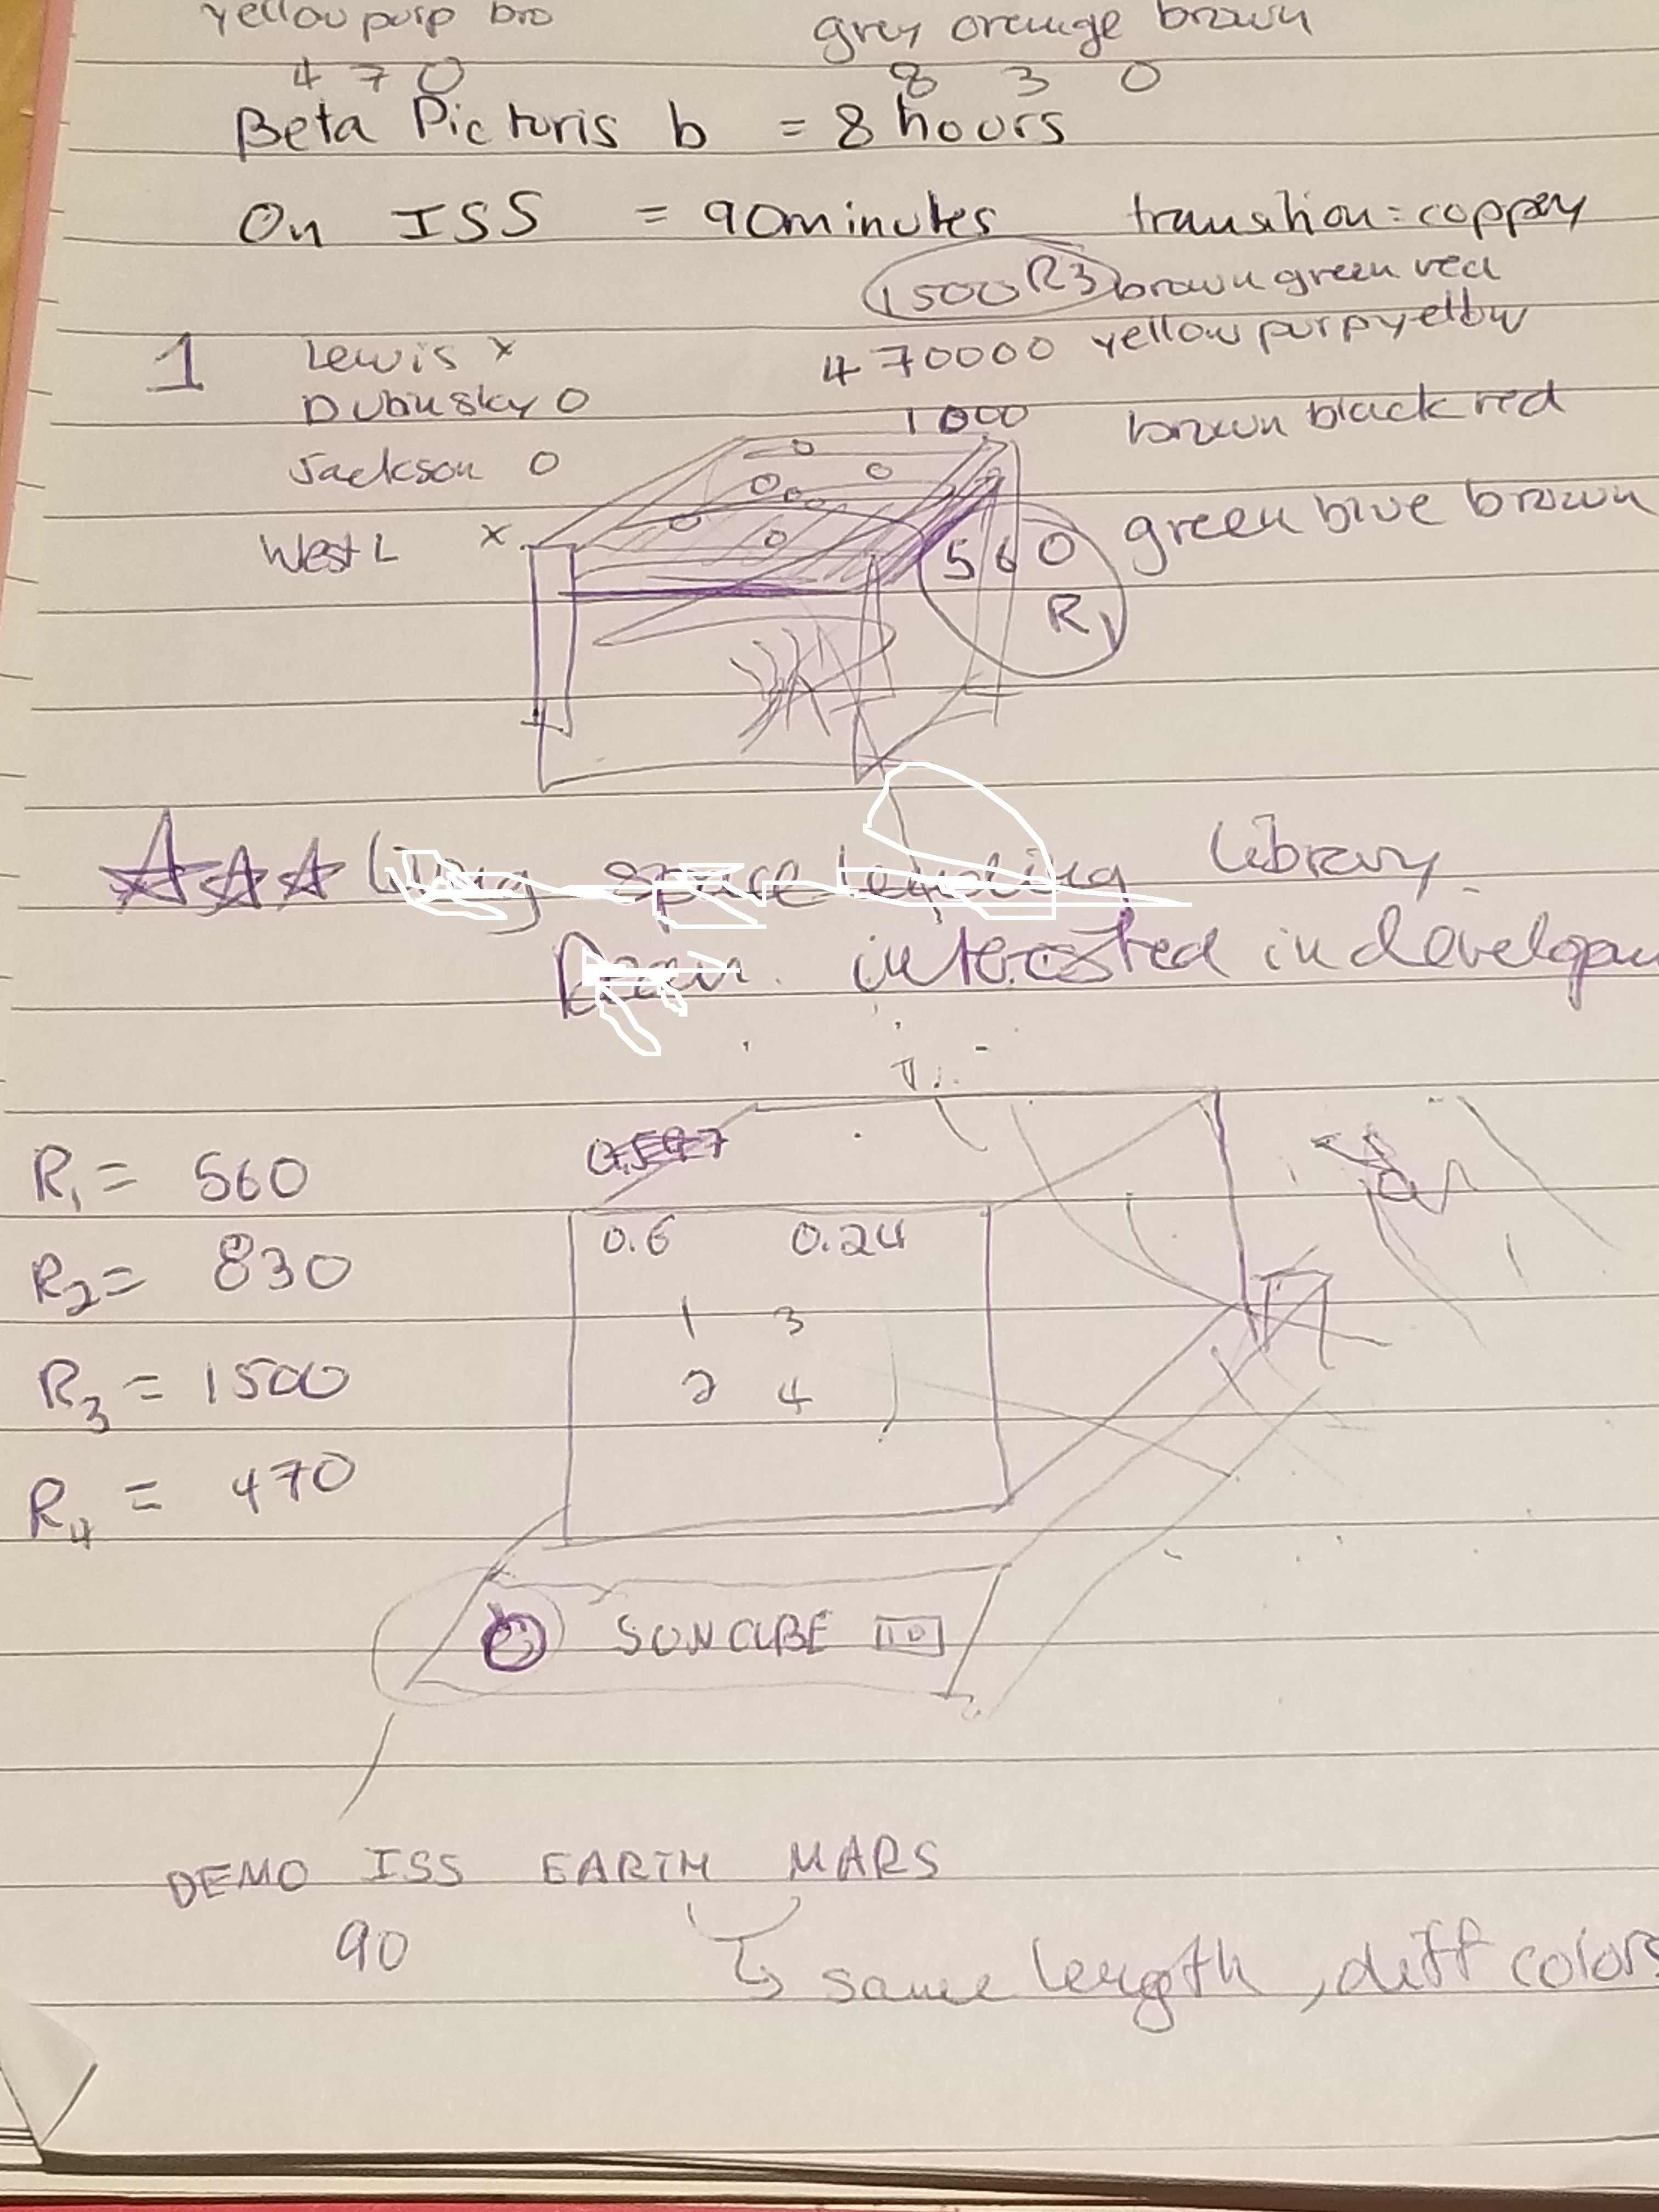 yellow purp bro grey orange brown
4 7 0 8 3 0
Beta Pictoris b = 8 hours
On ISS = 90 minutes transition = coppey
1500 R3 brown green red
1 Lewis x 470000 yellow purp yellow
Dubinsky O
1000 brown black red
Jackson O
West L x 560 green blue brown
R1
library.
interested in
R1 = 560
R2 = 830 0.6 0.24
1 3
R3 = 1500 2 4
R4 = 470
SUNCUBE
DEMO ISS EARTH MARS
90 same length, diff colors